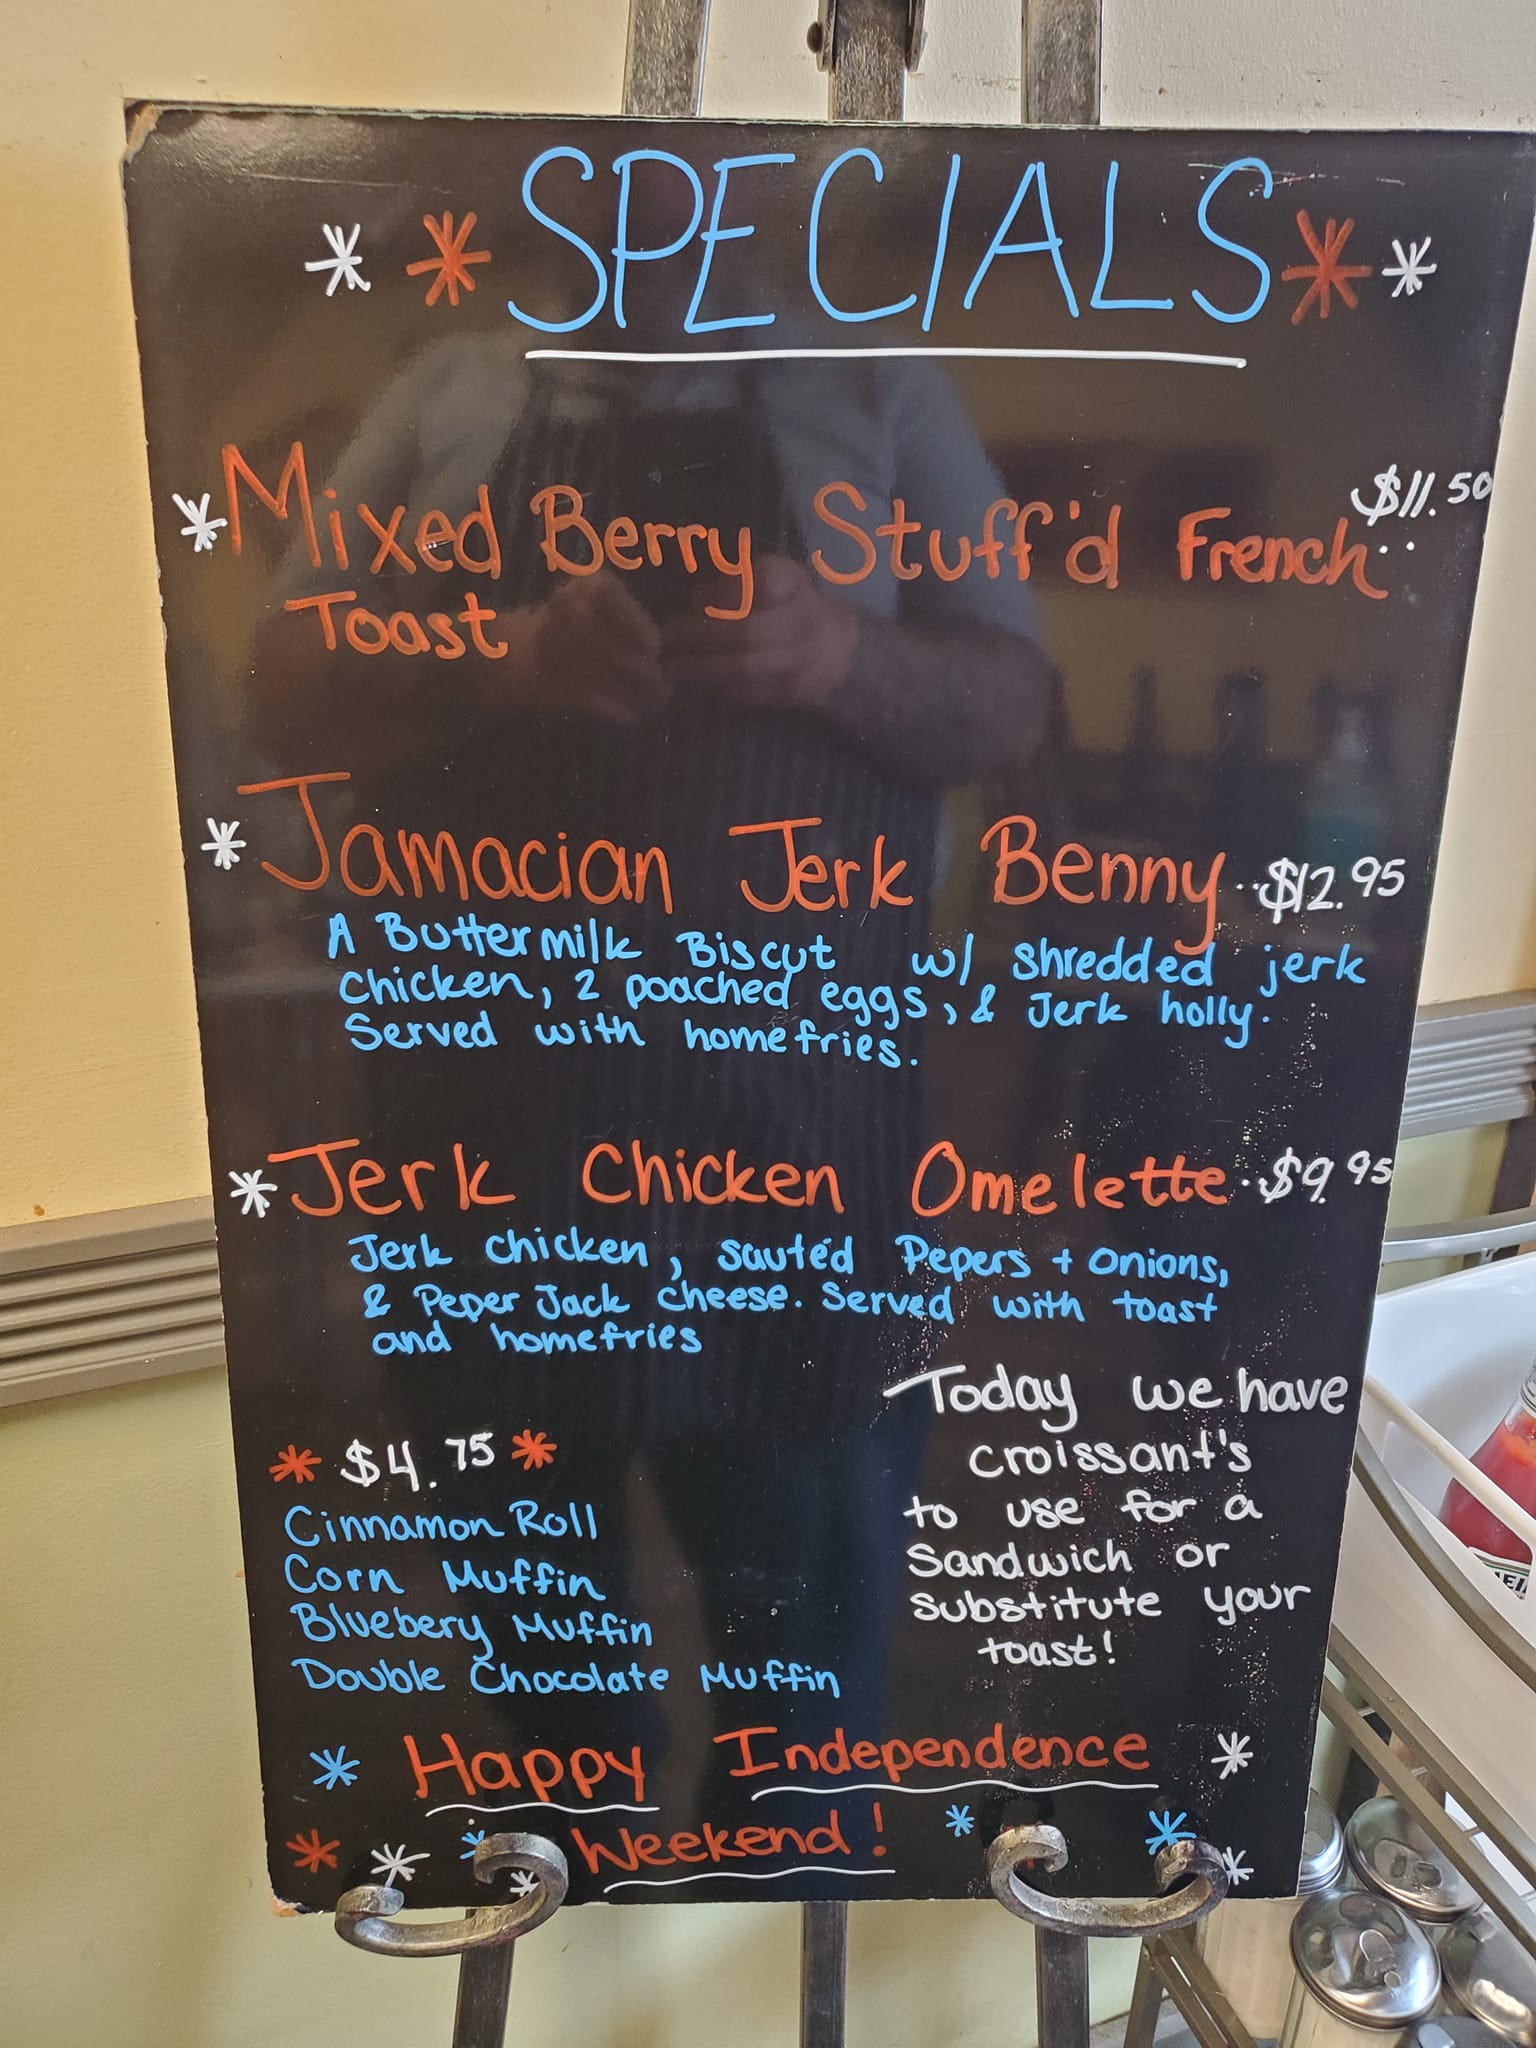 SPECIALS
$11.50
Mixed Berry Stuff'd French..
Toast
Jamacian Jerk Benny..$12.95
A Buttermilk Biscut w/ shredded jerk
chicken, 2 poached eggs, & Jerk holly.
Served with homefries.
Jerk Chicken Omelette.$9.95
Jerk chicken, sautéd Pepers + onions,
& Peper Jack cheese. Served with toast
and homefries
Today we have
croissant's
to use for a
sandwich or
substitute your
toast!
$4.75
Cinnamon Roll
Corn Muffin
Bluebery Muffin
Double Chocolate Muffin
Happy Independence
Weekend!